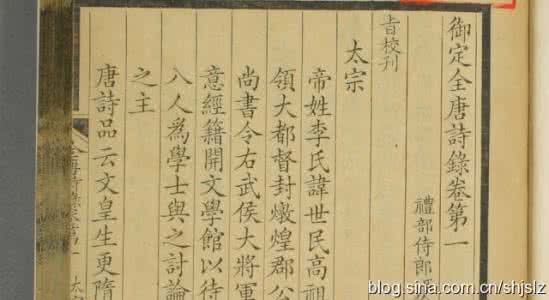 御定全唐詩錄卷第一
禮部侍郎
旨校刊
太宗
帝姓李氏諱世民高祖
領大都督封燉煌郡公
尚書令右武侯大將軍
意經籍開文學館以待
八人爲學士與之討論
之主
唐詩品云文皇生更隋
blog.sina.com.cn/shjslz